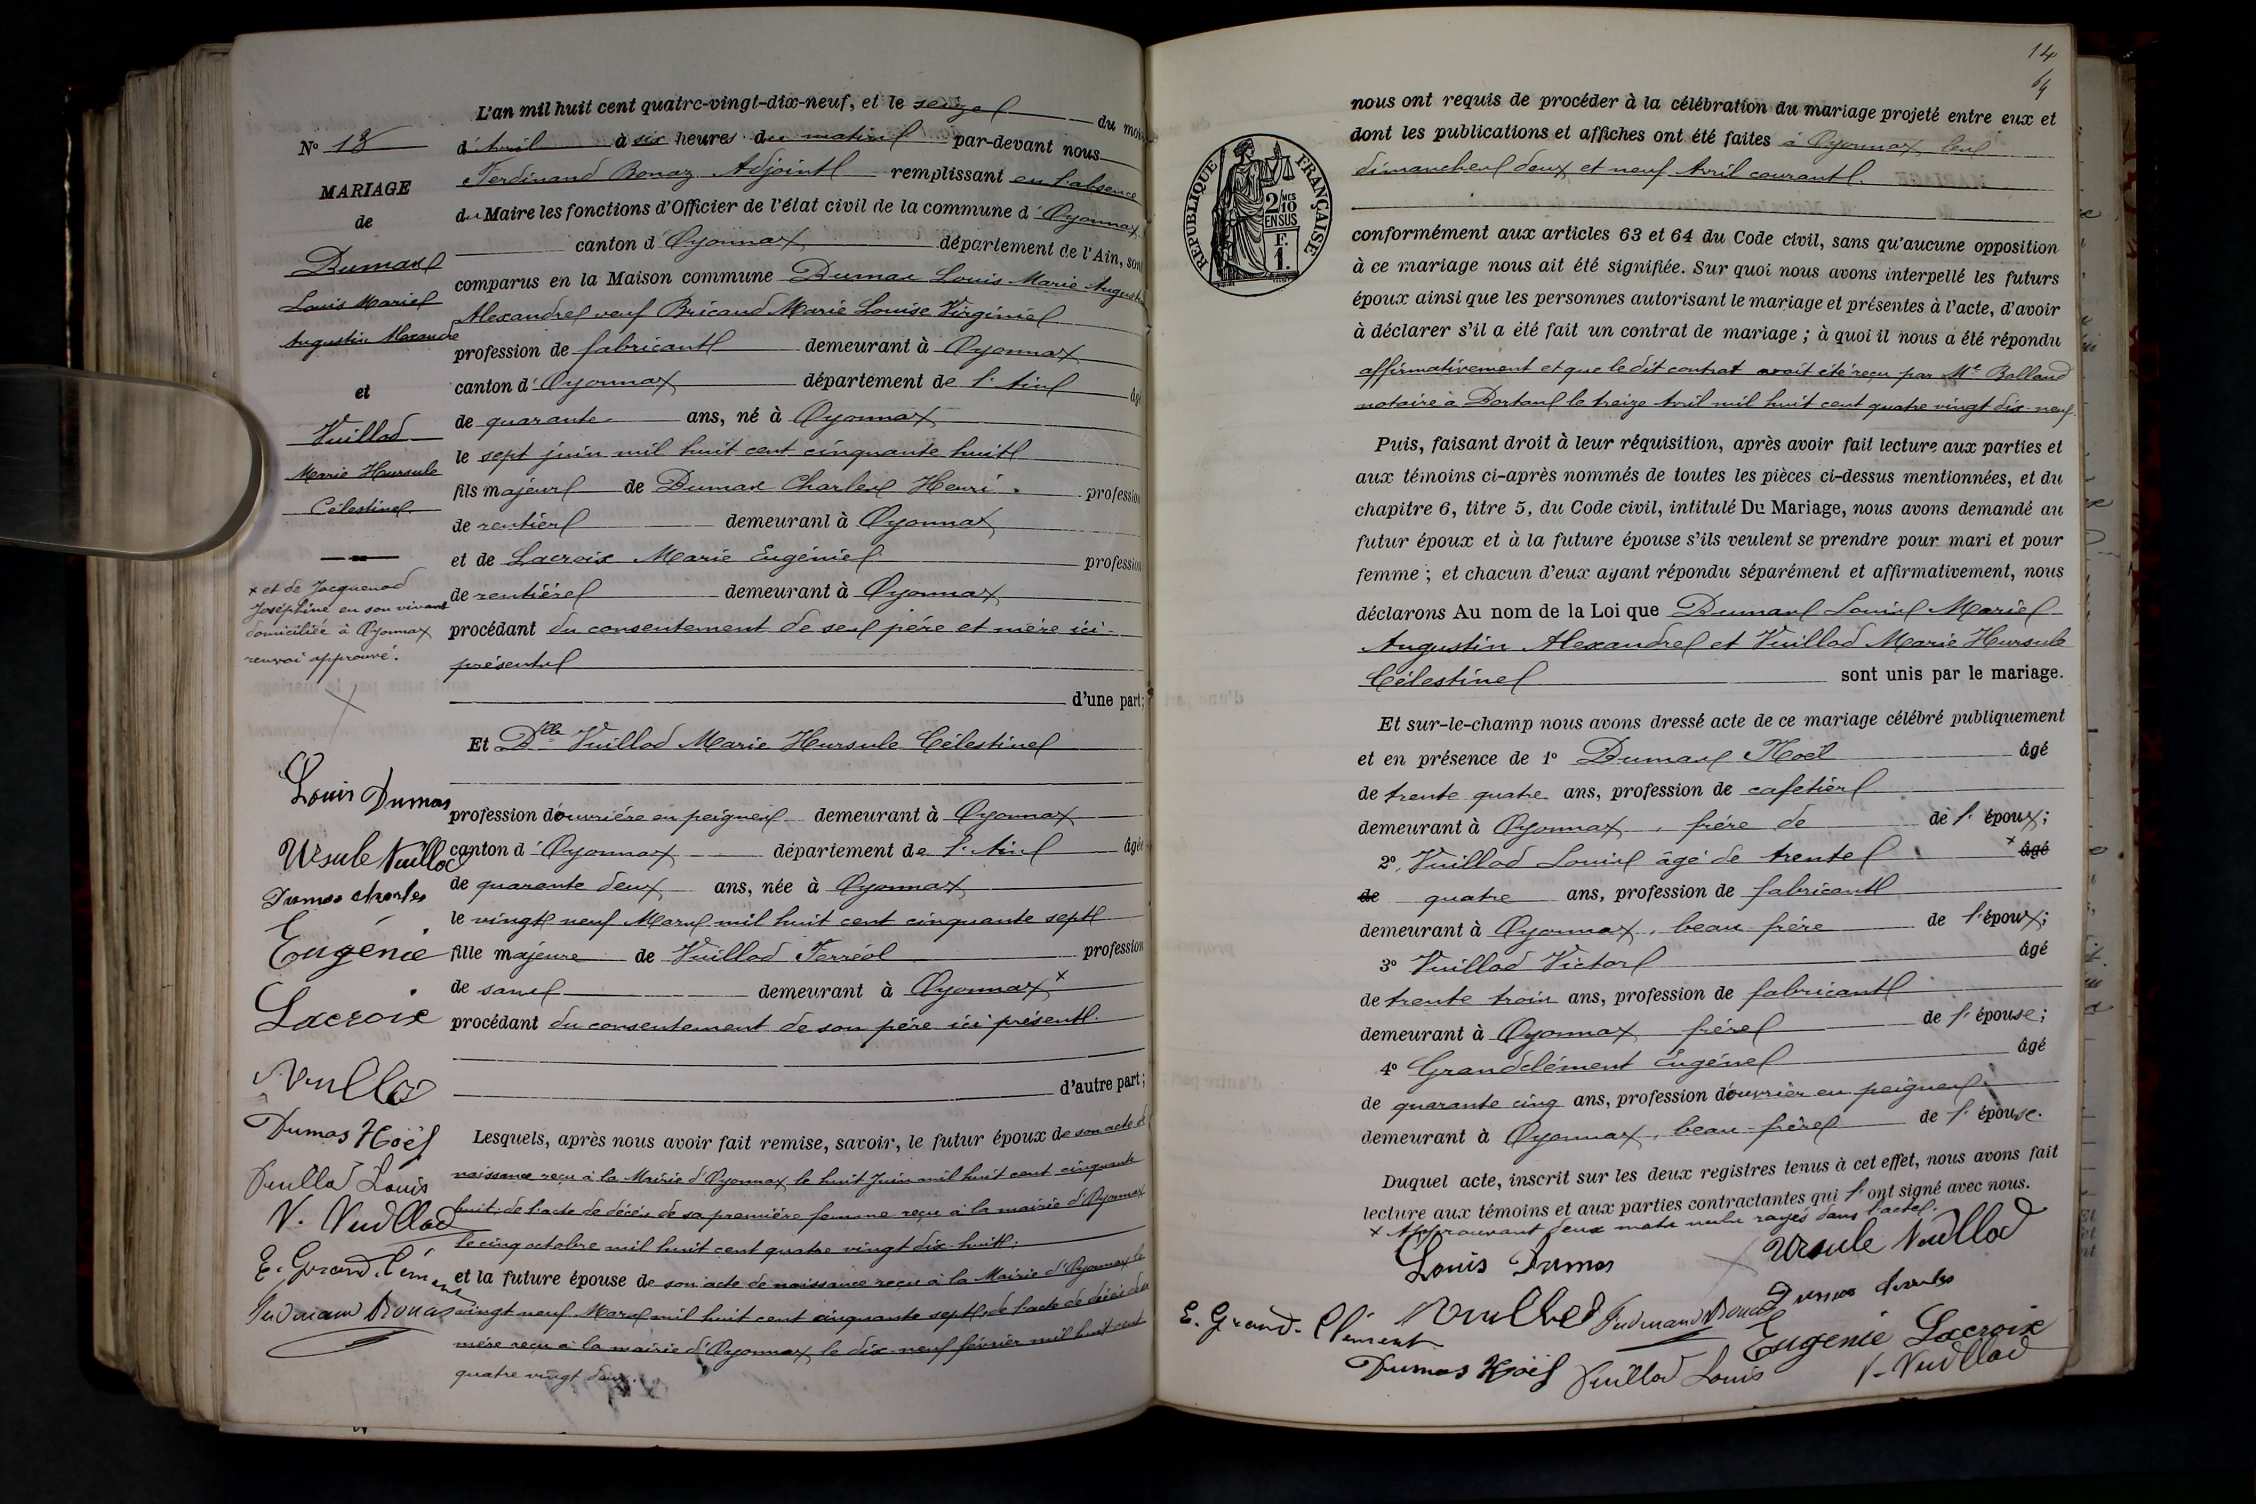 L'an mil huit cent quatre-vingt-dix-neuf, et le seize du mois
N° 18 d'Avril à six heures du matin par-devant nous
Ferdinand Bonaz Adjoint remplissant en l'absence
du Maire les fonctions d'Officier de l'état civil de la commune d'Oyonnax
canton d'Oyonnax département de l'Ain, sont
comparus en la Maison commune Dumas Louis Marie Augustin
Alexandre veuf Bricaud Marie Louise Virginie
profession de fabricant demeurant à Oyonnax
canton d'Oyonnax département de l'Ain âgé
de quarante ans, né à Oyonnax
le sept juin mil huit cent cinquante huit
fils majeur de Dumas Charles Henri profession
de rentier demeurant à Oyonnax
et de Lacroix Marie Eugénie profession
de rentière demeurant à Oyonnax
procédant du consentement de ses père et mère ici-
présents
d'une part;
Et Dlle Vuillod Marie Hursule Célestine
profession d'ouvrière en peignes demeurant à Oyonnax
canton d'Oyonnax département de l'Ain âgée
de quarante deux ans, née à Oyonnax
le vingt neuf Mars mil huit cent cinquante sept
fille majeure de Vuillod Ferréol profession
de sans demeurant à Oyonnax x
procédant du consentement de son père ici présent.
d'autre part;
Lesquels, après nous avoir fait remise, savoir, le futur époux de son acte de
naissance reçu à la Mairie d'Oyonnax le huit Juin mil huit cent cinquante
huit; de l'acte de décès de sa première femme reçu à la mairie d'Oyonnax
le cinq octobre mil huit cent quatre vingt dix-huit;
et la future épouse de son acte de naissance reçu à la Mairie d'Oyonnax le
vingt neuf Mars mil huit cent cinquante sept; de l'acte de décès de sa
mère reçu à la mairie d'Oyonnax le dix-neuf février mil huit cent
quatre vingt deux.
MARIAGE
de
Dumas
Louis Marie
Augustin Alexandre
et
Vuillod
Marie Hursule
Célestine
x et de Jacquenod
Joséphine en son vivant
domiciliée à Oyonnax
renvoi approuvé.
Louis Dumas
Ursule Vuillod
Dumas Charles
Eugénie
Lacroix
Vuillod
Dumas Noël
Vuillod Louis
V. Vuillod
E. Grand-Clément
Ferdinand Bonaz
14
nous ont requis de procéder à la célébration du mariage projeté entre eux et
dont les publications et affiches ont été faites à Oyonnax les
dimanches deux et neuf Avril courant.
RÉPUBLIQUE FRANÇAISE
2 MES
10
EN SUS
F.
1.
conformément aux articles 63 et 64 du Code civil, sans qu'aucune opposition
à ce mariage nous ait été signifiée. Sur quoi nous avons interpellé les futurs
époux ainsi que les personnes autorisant le mariage et présentes à l'acte, d'avoir
à déclarer s'il a été fait un contrat de mariage; à quoi il nous a été répondu
affirmativement et que le dit contrat avait été reçu par Me Balland
notaire à Dortan le treize Avril mil huit cent quatre vingt dix-neuf.
Puis, faisant droit à leur réquisition, après avoir fait lecture aux parties et
aux témoins ci-après nommés de toutes les pièces ci-dessus mentionnées, et du
chapitre 6, titre 5, du Code civil, intitulé Du Mariage, nous avons demandé au
futur époux et à la future épouse s'ils veulent se prendre pour mari et pour
femme; et chacun d'eux ayant répondu séparément et affirmativement, nous
déclarons Au nom de la Loi que Dumas Louis Marie
Augustin Alexandre et Vuillod Marie Hursule
Célestine sont unis par le mariage.
Et sur-le-champ nous avons dressé acte de ce mariage célébré publiquement
et en présence de 1° Dumas Noël âgé
de trente quatre ans, profession de cafetier
demeurant à Oyonnax, frère de de l'époux;
2° Vuillod Louis âgé de trente x âgé
de quatre ans, profession de fabricant
demeurant à Oyonnax, beau frère de l'époux;
3° Vuillod Victor âgé
de trente trois ans, profession de fabricant
demeurant à Oyonnax frère de l'épouse;
4° Grandclément Eugène âgé
de quarante cinq ans, profession d'ouvrier en peignes
demeurant à Oyonnax, beau-frère de l'épouse.
Duquel acte, inscrit sur les deux registres tenus à cet effet, nous avons fait
lecture aux témoins et aux parties contractantes qui l'ont signé avec nous.
x Approuvant deux mots nuls rayés dans l'acte.
Louis Dumas
Ursule Vuillod
Dumas Charles
E. Grand-Clément
Vuillod
Ferdinand Bonaz
Eugénie Lacroix
Dumas Noël
Vuillod Louis
V. Vuillod